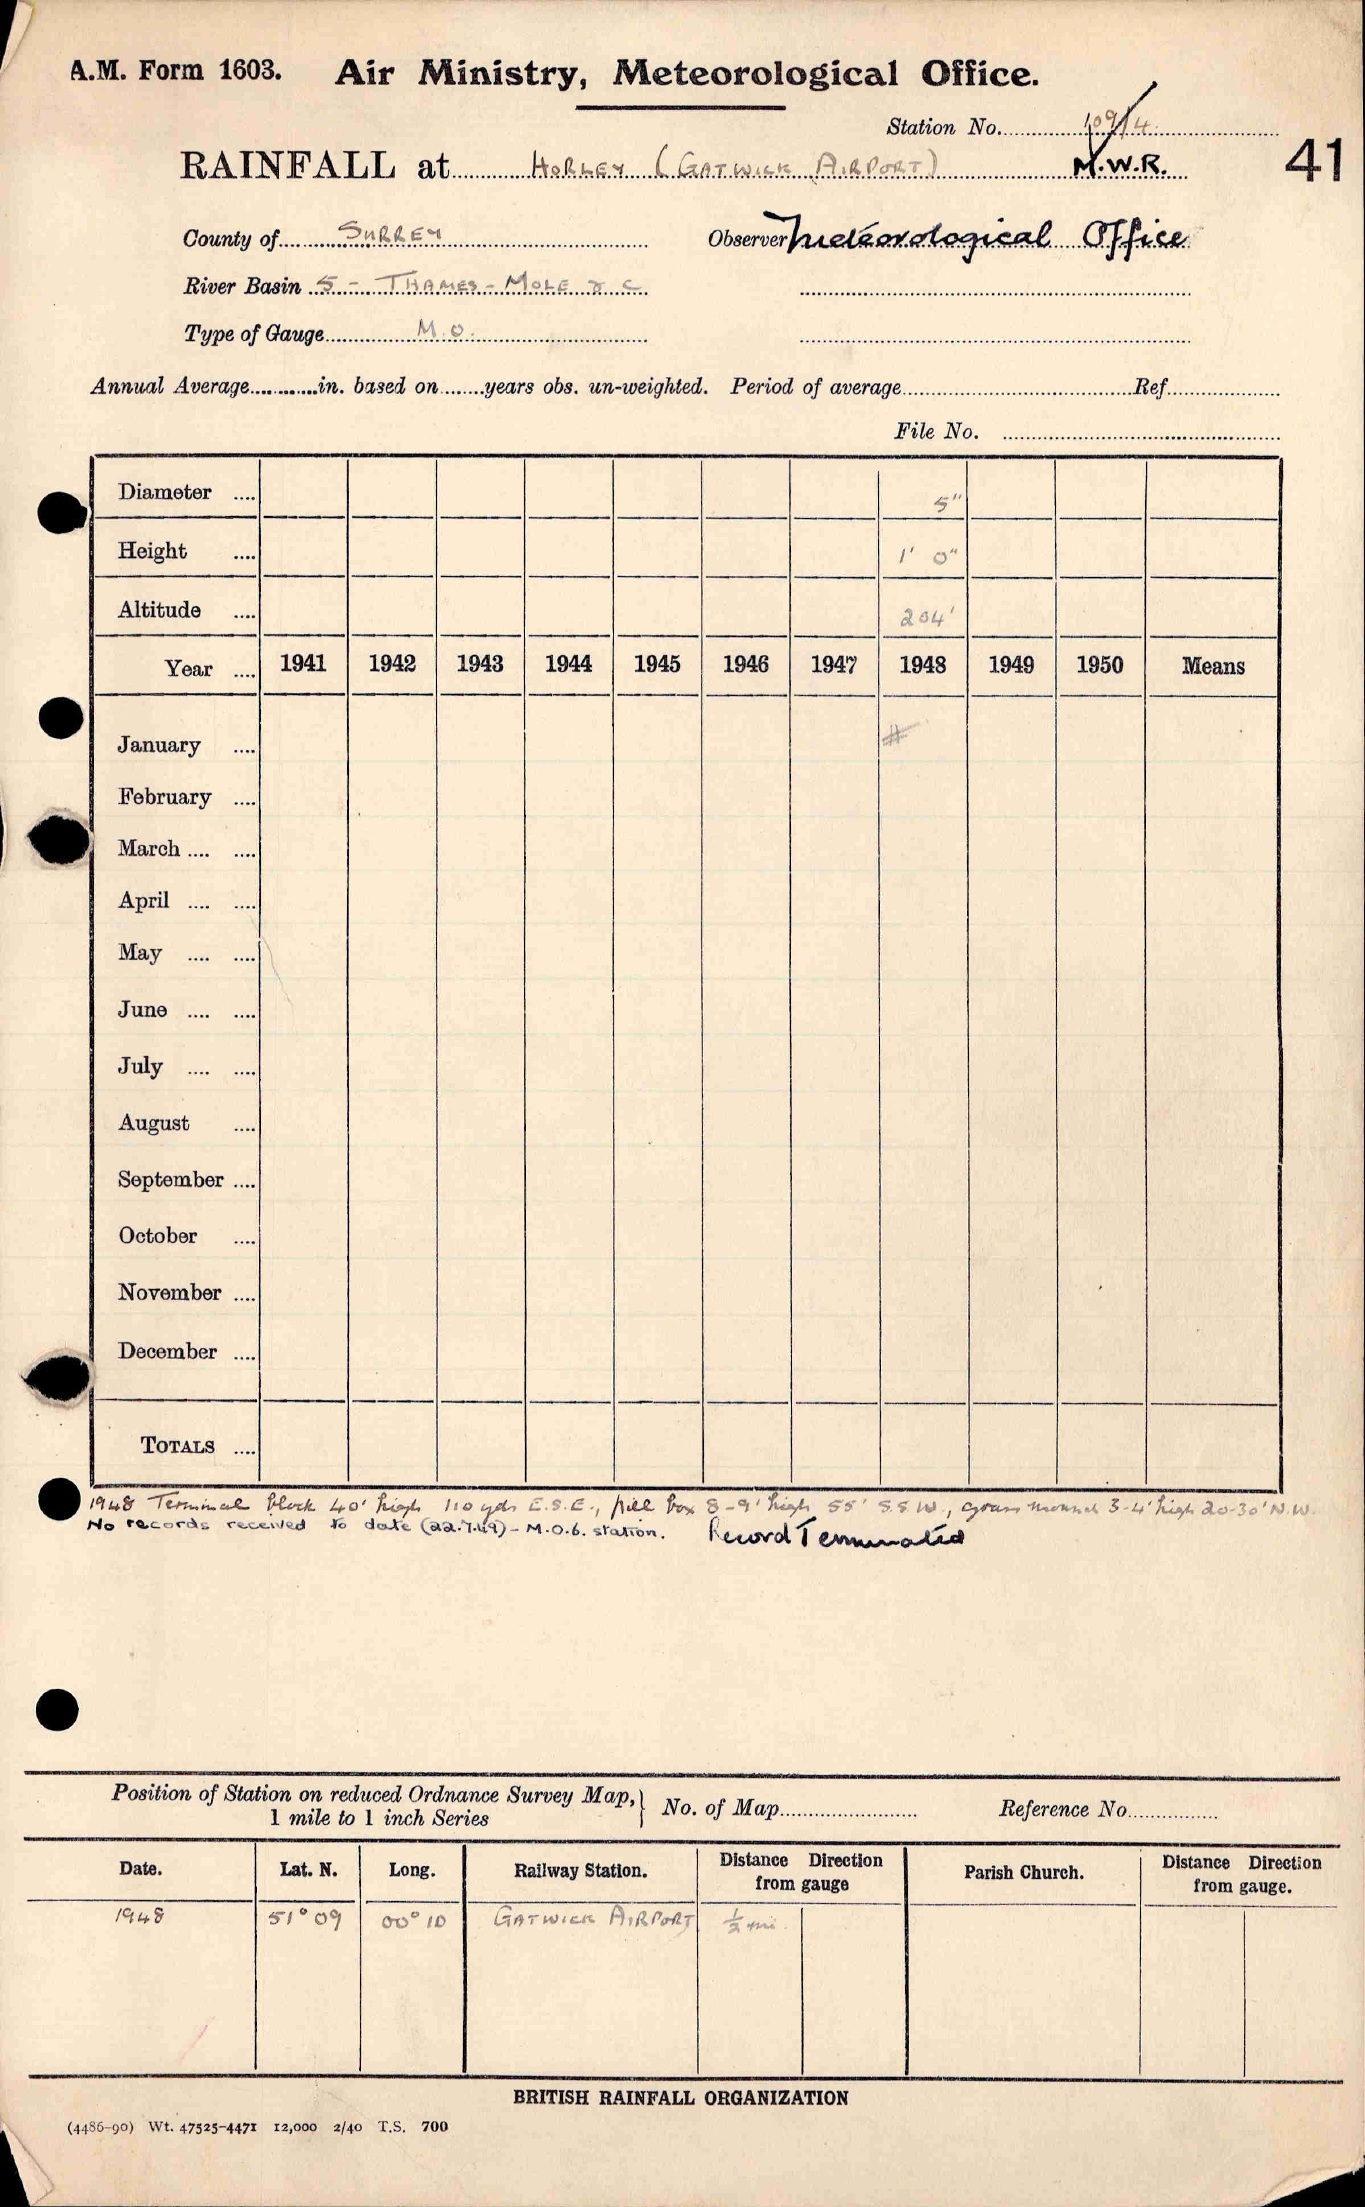 A.M. Form 1603. Air Ministry, Meteorological Office.
Station No. 109/4
RAINFALL at HORLEY (GATWICK AIRPORT) M.W.R. 41
County of SURREY Observer Meteorological Office
River Basin 5 - THAMES - MOLE & C
Type of Gauge M.O.
Annual Average in. based on years obs. un-weighted. Period of average Ref
File No.
Diameter 5"
Height 1' 0"
Altitude 204'
Year 1941 1942 1943 1944 1945 1946 1947 1948 1949 1950 Means
January #
February
March
April
May
June
July
August
September
October
November
December
TOTALS
1948 Terminal block 40' high 110 yds E.S.E., pill box 8-9' high 55' S.S.W., grass mound 3-4' high 20-30' N.W.
No records received to date (22.7.49) - M.O.6. station. Record Terminated
Position of Station on reduced Ordnance Survey Map, } No. of Map Reference No
1 mile to 1 inch Series
Date. Lat. N. Long. Railway Station. Distance Direction from gauge Parish Church. Distance Direction from gauge.
1948 51° 09 00° 10 GATWICK AIRPORT ½ mi.
BRITISH RAINFALL ORGANIZATION
(4486-90) Wt. 47525-4471 12,000 2/40 T.S. 700